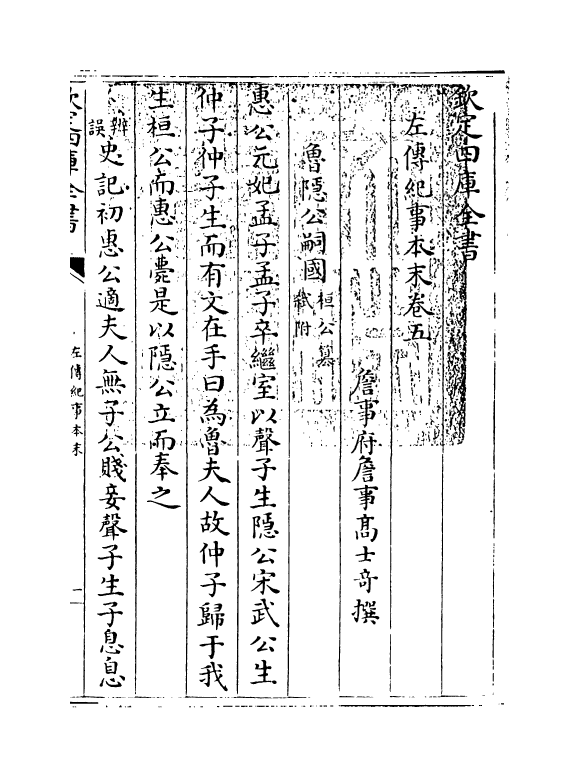 欽定四庫全書
左傳紀事本末卷五
詹事府詹事高士奇撰
魯隱公嗣國桓公篡弑附
惠公元妃孟子孟子卒繼室以聲子生隱公宋武公生
仲子仲子生而有文在手曰為魯夫人故仲子歸于我
生桓公而惠公薨是以隱公立而奉之
辨誤史記初惠公適夫人無子公賤妾聲子生子息息
欽定四庫全書
左傳紀事本末
一